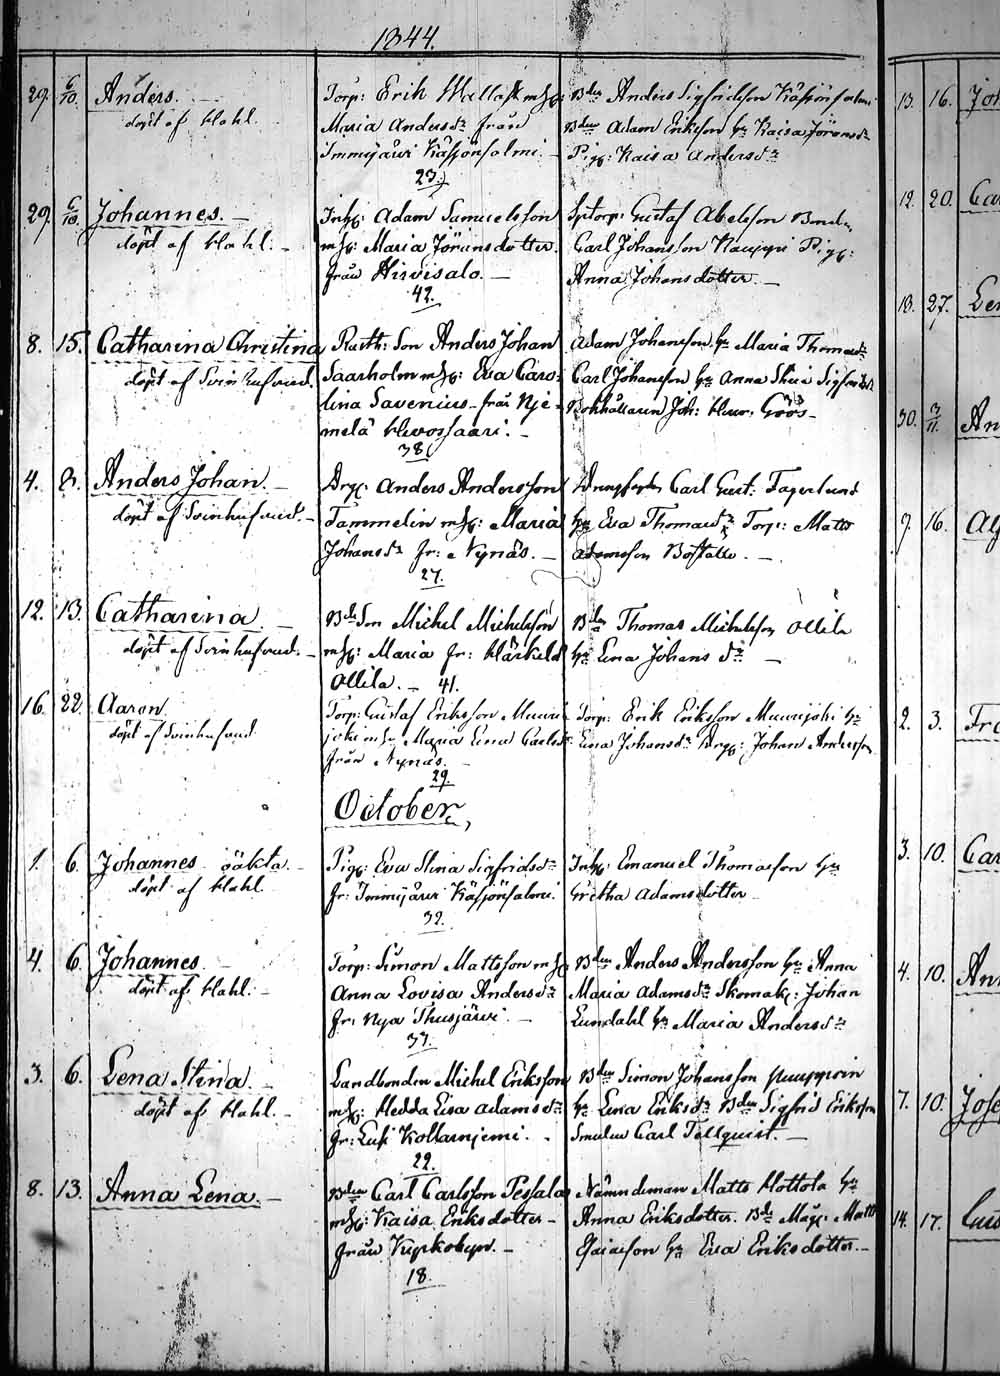 1844.
29. 6/10. Anders.
döpt af Hahl.
Torp: Erik
Maria Andersdr från
Immijärvi Käsjönsalmi.
23.
Bdn Anders Sigfridsson
Bdn Adam Eriksson Hu Kaisa Jöransdr
Pig: Kaisa Andersdr
29. 6/10. Johannes. —
döpt af Hahl. —
Inh: Adam Samuelsson
mh: Maria Jöransdotter.
från Hirvisalo. —
42.
Gustaf Abelsson
Carl Johansson Kauppi Pig:
Anna Johansdotter. —
8. 15. Catharina Christina
döpt af Svinhufvud.
Rusth: Son Anders Johan
Saarholm mh: Eva Caro-
lina Savenius från
38
Adam Johansson. Hu Maria Thomasdr
Carl Johansson Hu Anna Stina
Bokhållaren Joh:
4. 8. Anders Johan. —
döpt af Svinhufvud. —
Drg: Anders Andersson
Tammelin mh: Maria
Johansdr fr: Nynäs. —
27.
Carl Gust: Fagerlund
Hu Eva Thomasdr Torp: Matts
Adamsson
12. 13. Catharina —
döpt af Svinhufvud. —
Bde Son Michel Michelsson
mh: Maria fr: Härkälä
Ollila. — 41.
Bdn Thomas Michelsson Ollila
Hu Lena Johansdr —
16. 22. Aaron.
döpt af Svinhufvud
Torp: Gustaf Eriksson Muuri-
joki mh Maria Lena Carlsdr
från Nynäs. —
29.
Torp: Erik Eriksson Muurijoki Hu
Lena Johansdr Drg: Johan Andersson
October,
1. 6. Johannes oäkta. —
döpt af Hahl.
Pig: Eva Stina Sigfridsdr
fr: Immijärvi Käsjönsalmi.
32.
Inh: Emanuel Thomasson Hu
Gretha Adamsdotter
4. 6. Johannes —
döpt af Hahl. —
Torp: Simon Mattsson mh
Anna Lovisa Andersdr
fr: Nya Thusjärvi. —
37.
Bdn Anders Andersson Hu Anna
Maria Adamsdr Skomak: Johan
Lundahl Hu Maria Andersdr
3. 6. Lena Stina. —
döpt af Hahl. —
Landbonden Michel Eriksson
mh: Hedda Lisa Adamsdr
fr:
22.
Bdn Simon Johansson
Hu Lena Eriksdr Bdn Sigfrid Eriksson
Carl Tellquist. —
8. 13. Anna Lena. —
Bdn Carl Carlsson
mh: Kaisa Eriksdotter —
från
18.
Nämndeman Matts Hottola Hu
Anna Eriksdotter. Bde Måg: Matts
Esaiasson Hu Eva Eriksdotter. —
13. 16. Joh
12. 20. Ca
13. 27. Le
30. 3/11. An
9. 16.
2. 3. Fr
3. 10. Ca
4. 10. An
7. 10. Jos
14. 17.